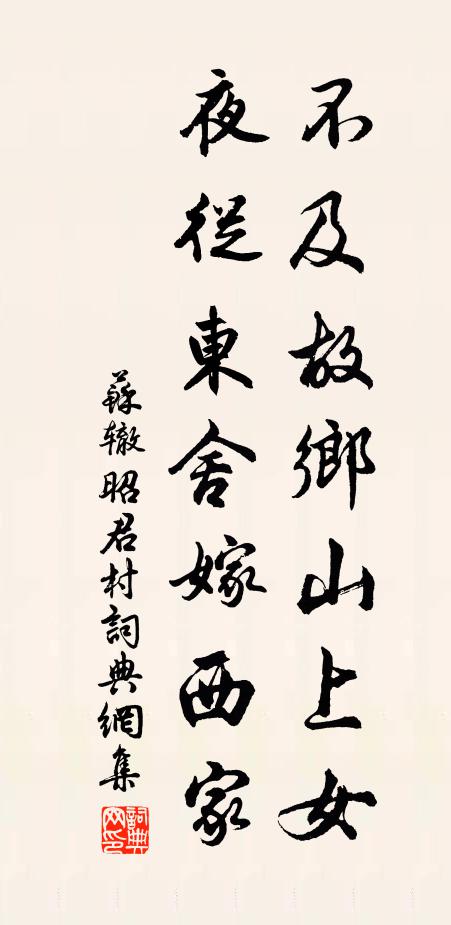 不及故鄉山上女
夜從東舍嫁西家
蘇辙昭君村詞典網集
詞典网印